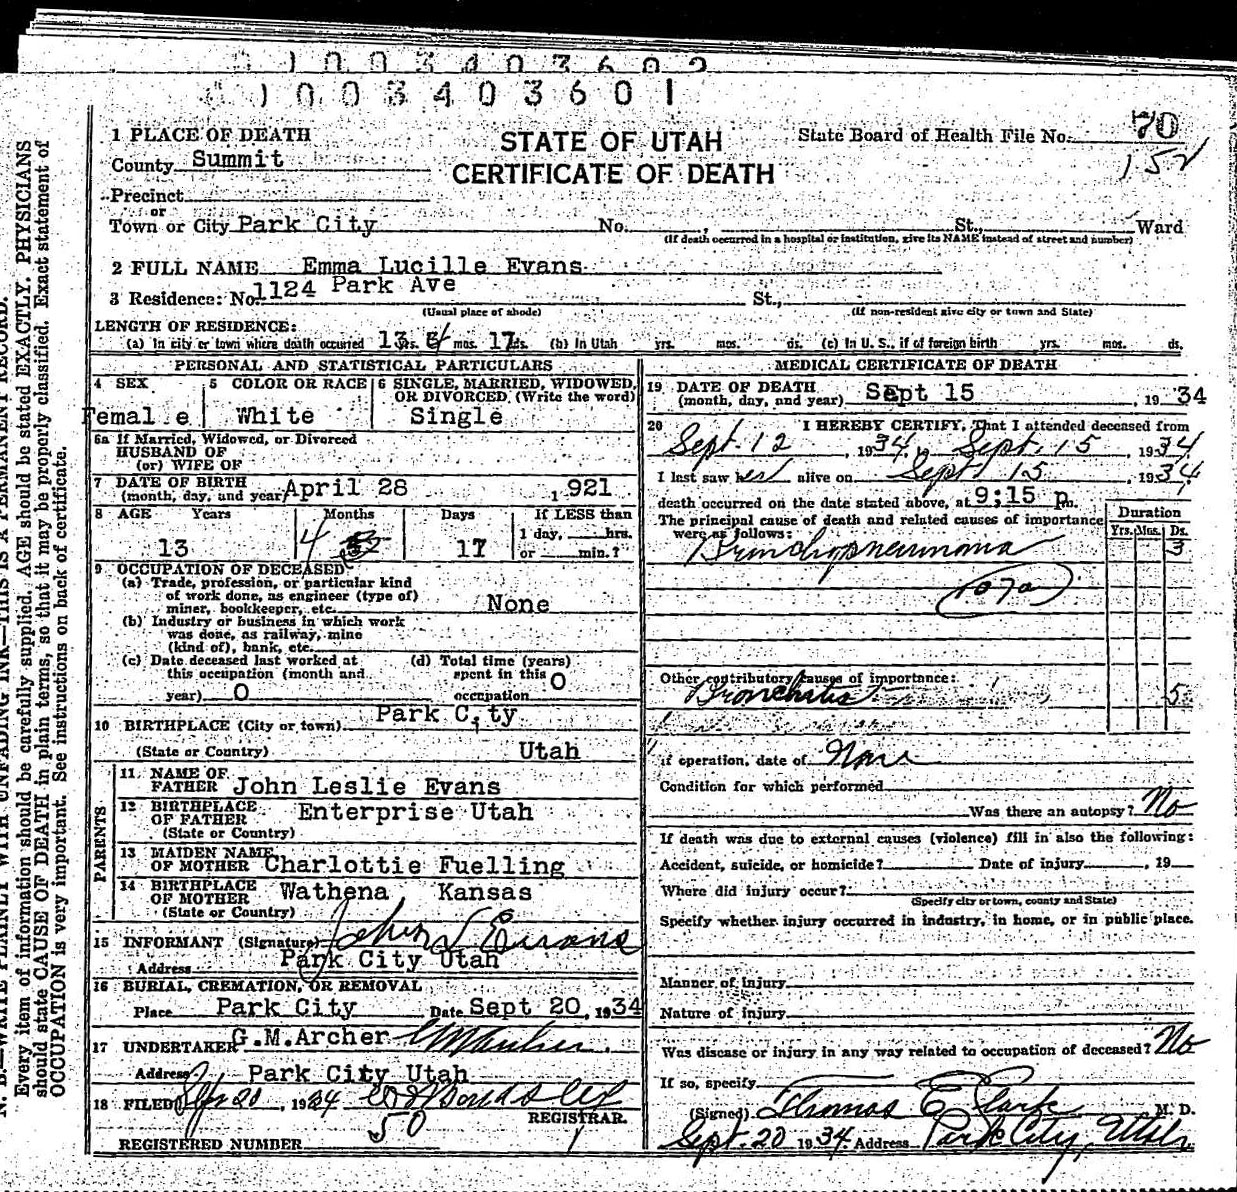 1 0 0 3 4 0 3 6 0 2
1 0 0 3 4 0 3 6 0 1
N. B.—WRITE PLAINLY WITH UNFADING INK—THIS IS A PERMANENT RECORD.
Every item of information should be carefully supplied. AGE should be stated EXACTLY. PHYSICIANS
should state CAUSE OF DEATH in plain terms, so that it may be properly classified. Exact statement of
OCCUPATION is very important. See instructions on back of certificate.
STATE OF UTAH
CERTIFICATE OF DEATH
State Board of Health File No. 70
152
1 PLACE OF DEATH
County Summit
Precinct
or
Town or City Park City No. , St., Ward
(If death occurred in a hospital or institution, give its NAME instead of street and number)
2 FULL NAME Emma Lucille Evans
3 Residence: No. 1124 Park Ave St.,
(Usual place of abode) (If non-resident give city or town and State)
LENGTH OF RESIDENCE:
(a) In city or town where death occurred 13 yrs. 4 mos. 17 ds. (b) In Utah yrs. mos. ds. (c) In U. S., if of foreign birth yrs. mos. ds.
PERSONAL AND STATISTICAL PARTICULARS
4 SEX Female
5 COLOR OR RACE White
6 SINGLE, MARRIED, WIDOWED, OR DIVORCED, (Write the word) Single
6a If Married, Widowed, or Divorced
HUSBAND OF
(or) WIFE OF
7 DATE OF BIRTH
(month, day, and year) April 28 1921
8 AGE Years Months Days If LESS than
13 4 17 1 day, hrs.
or min.?
9 OCCUPATION OF DECEASED
(a) Trade, profession, or particular kind
of work done, as engineer (type of)
miner, bookkeeper, etc. None
(b) Industry or business in which work
was done, as railway, mine
(kind of), bank, etc.
(c) Date deceased last worked at
this occupation (month and
year) 0
(d) Total time (years)
spent in this
occupation 0
10 BIRTHPLACE (City or town) Park City
(State or Country) Utah
PARENTS
11 NAME OF
FATHER John Leslie Evans
12 BIRTHPLACE
OF FATHER Enterprise Utah
(State or Country)
13 MAIDEN NAME
OF MOTHER Charlottie Fuelling
14 BIRTHPLACE
OF MOTHER Wathena Kansas
(State or Country)
15 INFORMANT (Signature) John Evans
Address Park City Utah
16 BURIAL, CREMATION, OR REMOVAL
Place Park City Date Sept 20, 1934
17 UNDERTAKER G.M.Archer GMArcher
Address Park City Utah
18 FILED Sep 20, 1934
REGISTRAR.
50
REGISTERED NUMBER
MEDICAL CERTIFICATE OF DEATH
19 DATE OF DEATH
(month, day, and year) Sept 15, 1934
20 I HEREBY CERTIFY, That I attended deceased from
Sept. 12, 1934, Sept. 15, 1934
I last saw her alive on Sept 15, 1934
death occurred on the date stated above, at 9:15 p.m.
The principal cause of death and related causes of importance
were as follows:
Duration
Yrs. Mos. Ds.
Bronchopneumonia 3
107a
Other contributory causes of importance:
Bronchitis 5
if operation, date of None
Condition for which performed
Was there an autopsy? No
If death was due to external causes (violence) fill in also the following:
Accident, suicide, or homicide? Date of injury , 19
Where did injury occur?
(Specify city or town, county and State)
Specify whether injury occurred in industry, in home, or in public place.
Manner of injury
Nature of injury
Was disease or injury in any way related to occupation of deceased? No
If so, specify
(Signed) Thomas E Clark M. D.
Sept. 20 1934 Address Park City, Utah